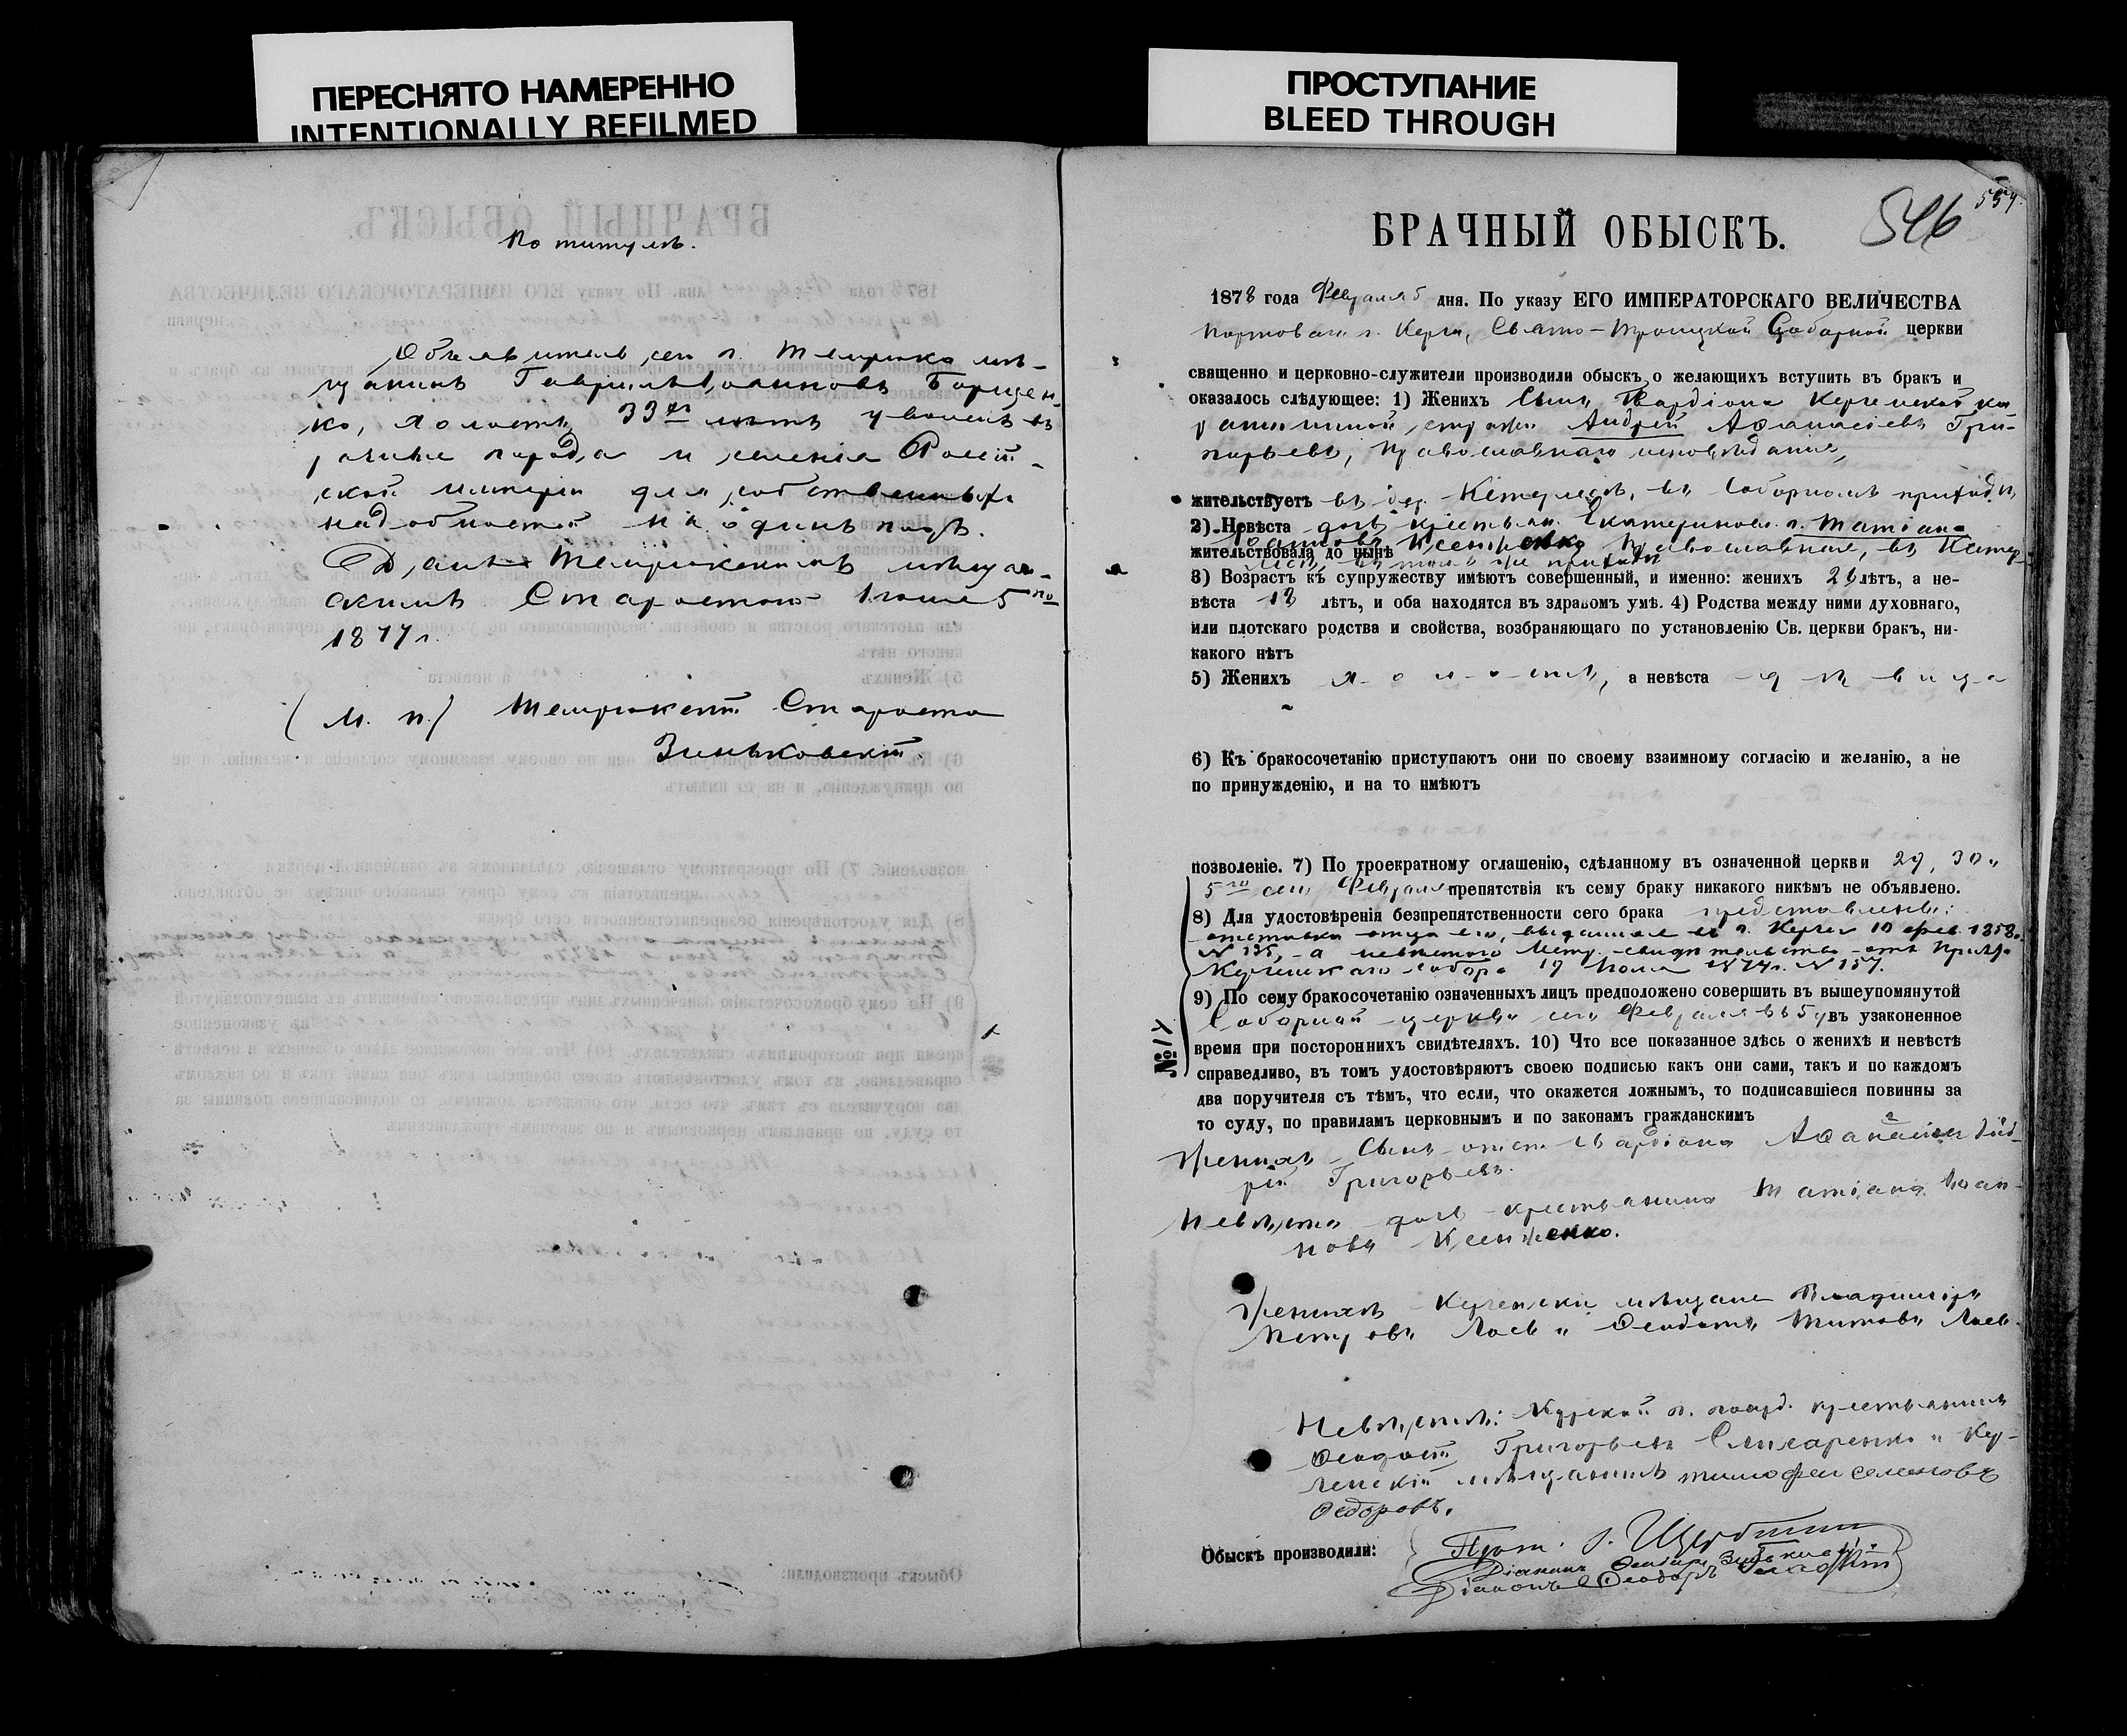 ПЕРЕСНЯТО НАМЕРЕННО
INTENTIONALLY REFILMED
ПРОСТУПАНИЕ
BLEED THROUGH
По титулѣ.
Объявитель сей г. Темрюка мѣ-
щанинъ Гавріилъ Іоанновъ Борщен-
ко, холостъ, 33 хъ лѣтъ уволенъ въ
разные города и селенія Россій-
ской Имперіи для собственныхъ
надобностей на одинъ годъ.
Данъ Темрюкскимъ мѣщан-
скимъ Старостою Іюня 5 го
1877 г.
(М. п.) Темрюкскій Староста
Зиньковскій.
546
БРАЧНЫЙ ОБЫСКЪ.
1878 года Февраля 5 дня. По указу ЕГО ИМПЕРАТОРСКАГО ВЕЛИЧЕСТВА
Портоваго г. Керчи, Свято-Троицкой Соборной церкви
священно и церковно-служители производили обыскъ о желающихъ вступить въ бракъ и
оказалось слѣдующее: 1) Женихъ Сынъ Гвардіона Керченской ка-
рантинной стражи Андрей Аѳанасіевъ Гри-
горьевъ, Православнаго исповѣданія,
жительствуетъ въ дер. въ Соборномъ приходѣ,
2) Невѣста дочь крестьян. Екатеринослав. г. Татіана
Іоаннова Ксенженко
жительствовала до нынѣ Православная, въ
въ томъ же приходѣ
3) Возрастъ къ супружеству имѣютъ совершенный, и именно: женихъ лѣтъ, а не-
вѣста 18 лѣтъ, и оба находятся въ здравомъ умѣ. 4) Родства между ними духовнаго,
или плотскаго родства и свойства, возбраняющаго по установленію Св. церкви бракъ, ни-
какого нѣтъ
5) Женихъ холостъ, а невѣста дѣвица
6) Къ бракосочетанію приступаютъ они по своему взаимному согласію и желанію, а не
по принужденію, и на то имѣютъ
позволеніе. 7) По троекратному оглашенію, сдѣланному въ означенной церкви 29, 30 и
5 го сего Февраля препятствія къ сему браку никакого никѣмъ не объявлено.
8) Для удостовѣренія безпрепятственности сего брака представлены:
отставка отца его, выданная въ г. Керчи 10 фев. 1858 г.
№ 135, а невѣстою Метр. свидѣтельство отъ Причта
Керченскаго собора 19 Іюля г. № 157.
9) По сему бракосочетанію означенныхъ лицъ предположено совершить въ вышеупомянутой
Соборной церкви сего Февраля въ 5 д въ узаконенное
№ 17
время при постороннихъ свидѣтеляхъ. 10) Что все показанное здѣсь о женихѣ и невѣстѣ
справедливо, въ томъ удостовѣряютъ своею подписью какъ они сами, такъ и по каждомъ
два поручителя съ тѣмъ, что если, что окажется ложнымъ, то подписавшіеся повинны за
то суду, по правиламъ церковнымъ и по законамъ гражданскимъ
Женихъ Сынъ отст. Гвардіона Аѳанасія Анд-
рей Григорьевъ.
Невѣста дочь крестьянина Татіана Іоан-
нова Ксенженко.
Женихѣ Керченскіе мѣщане Владиміръ
Петровъ Лаев и Ѳеодотъ Титовъ Лаев.
Невѣстѣ: Курской г. госуд. крестьянинъ
Ѳеодосій Григорьевъ Слихаренко и Кер-
ченскій мѣщанинъ Тимофей Семеновъ
Ѳедоровъ.
Обыскъ производили: Прот. І.
Діаконъ Зиньковскій
Діаконъ Ѳеодоръ